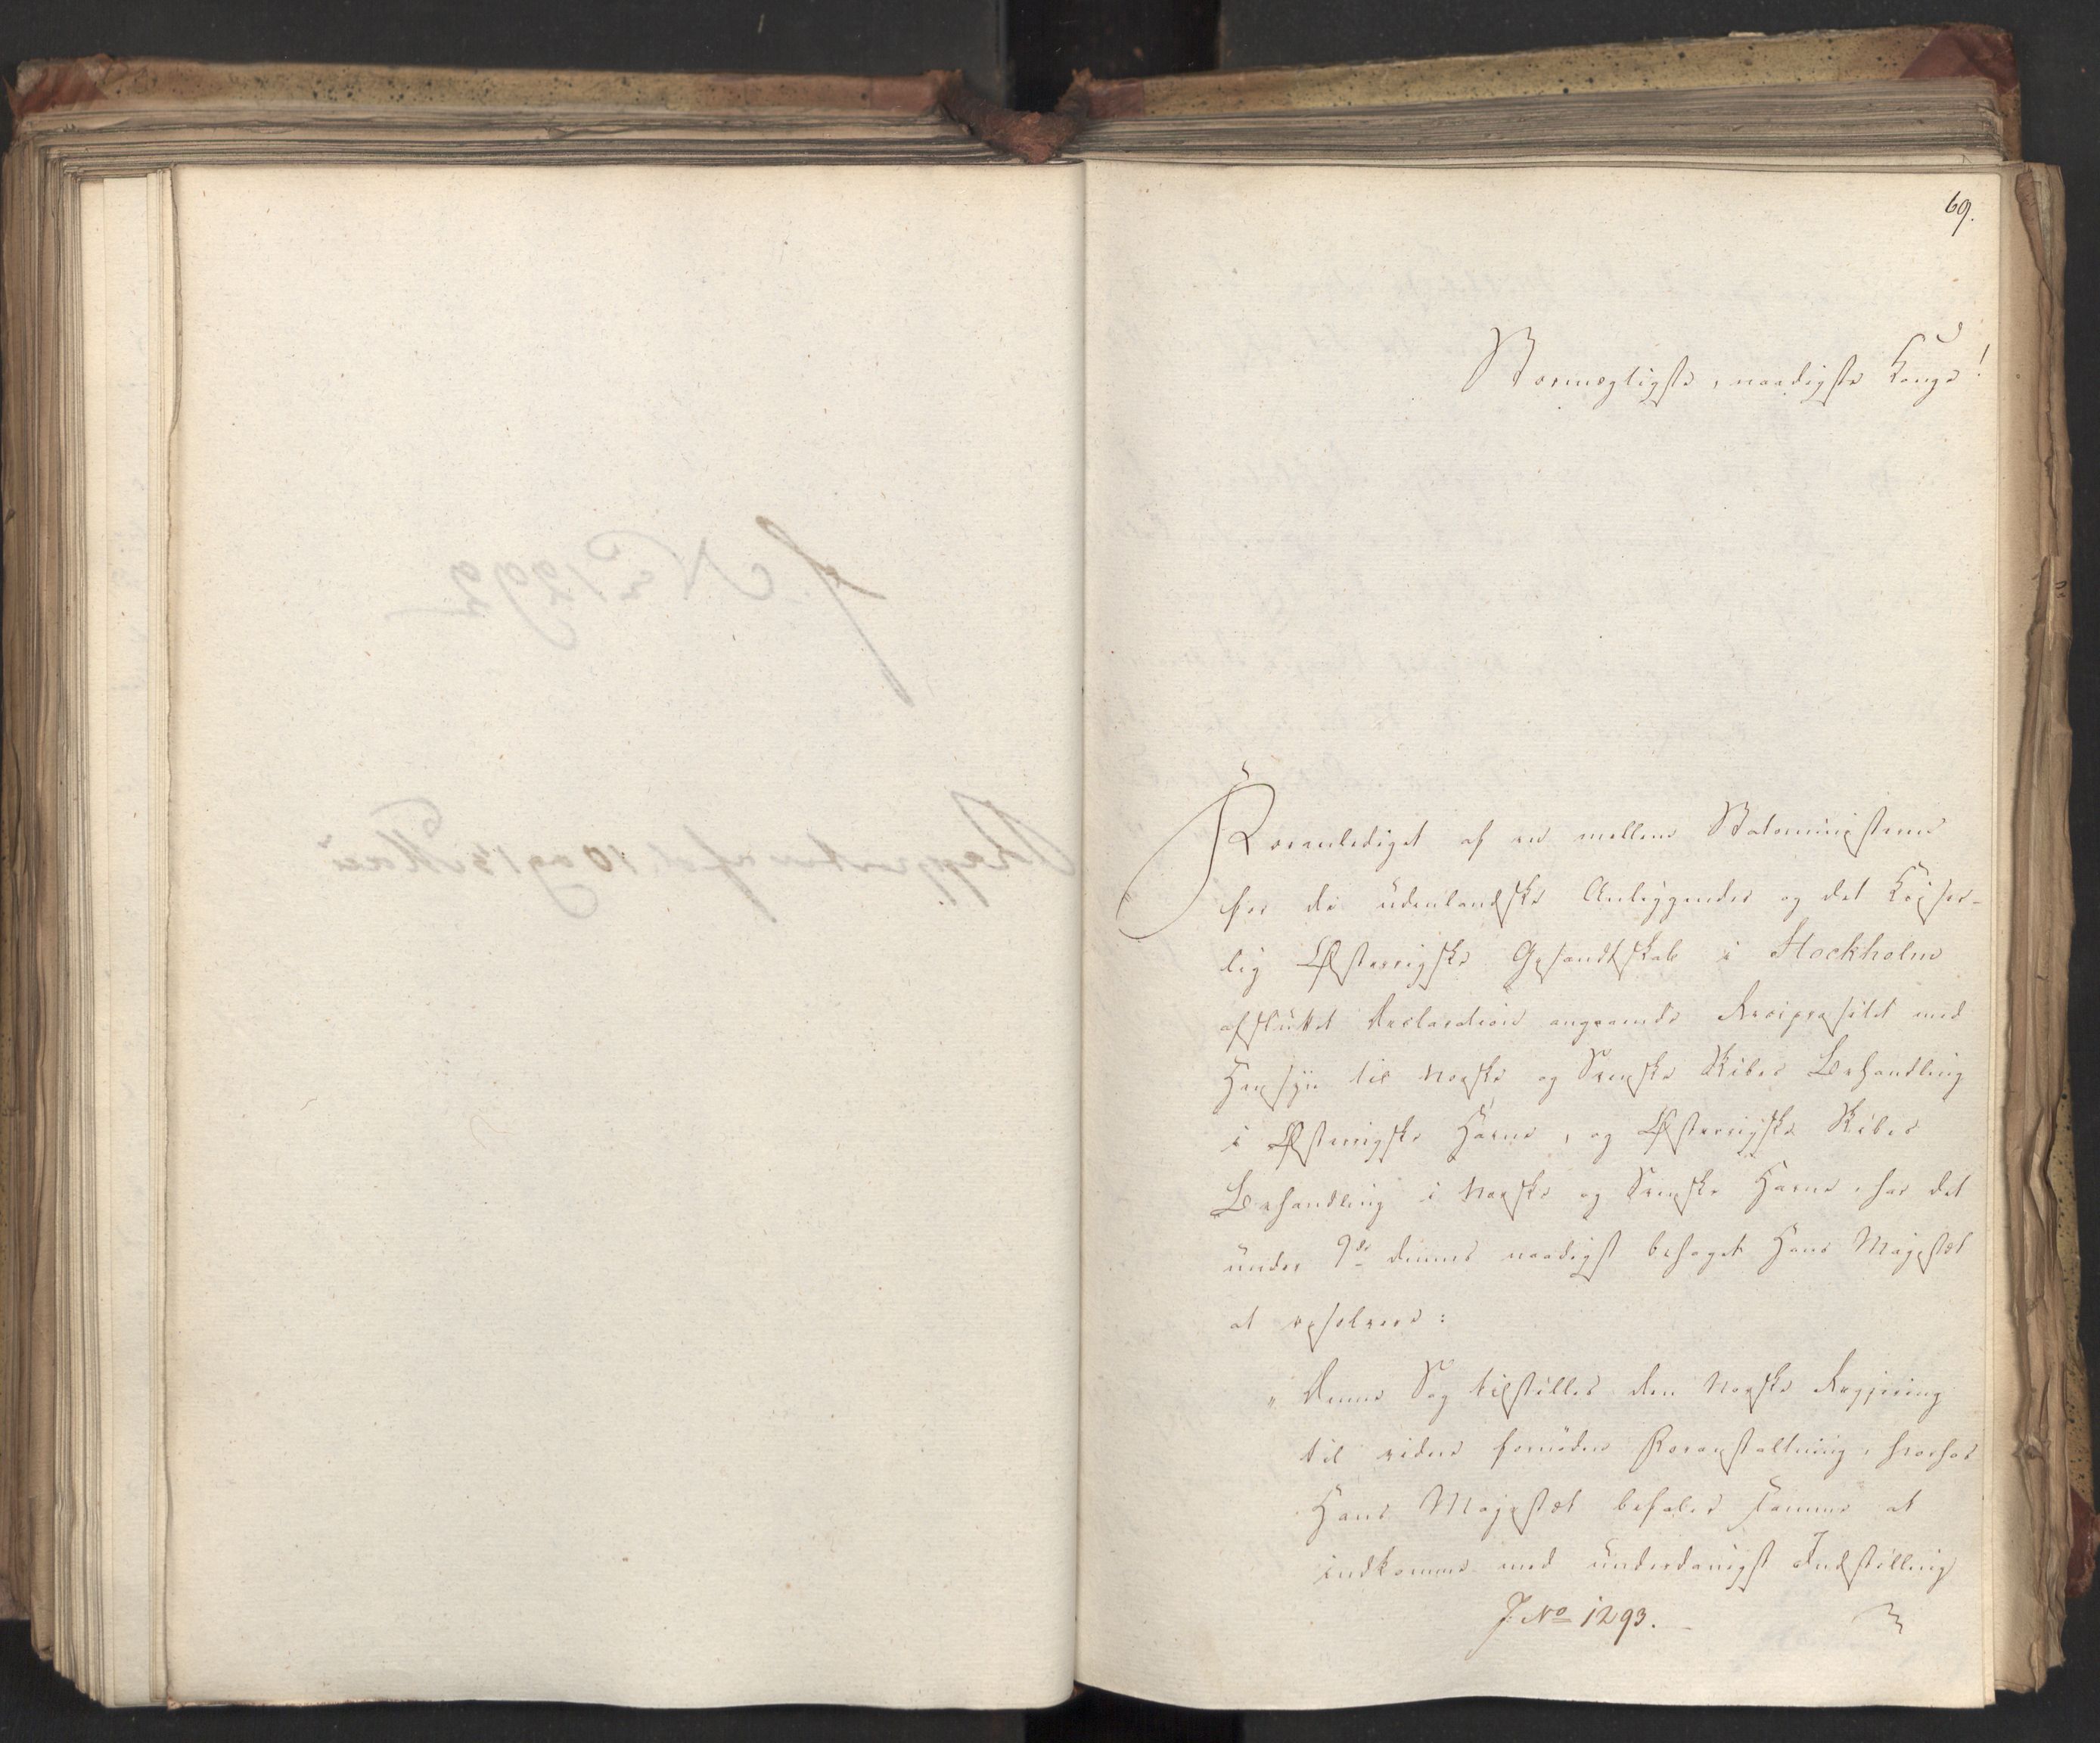 69.
Stormægtigste, naadigste Konge!
Foranlediget af en mellem Statsministeren
for de udenlandske Anliggender og det Keiser-
lig Østerrigske Gesandtskab i Stockholm
afsluttet Declaration angaaende Reciprositet med
Hensyn til Norske og Svenske Skibes Behandling
i Østerrigske Havne, og Østerrigske Skibes
Behandling i Norske og Svenske Havne, har det
under 9de dennes naadigst behaget Hans Majestæt
at resolvere:
"Denne Sag tilstilles den Norske Regjering
til videre fornøden Foranstaltning, hvorhos
Hans Majestæt befaler samme at
indkomme med underdanigst Indstilling
J. No 1293.